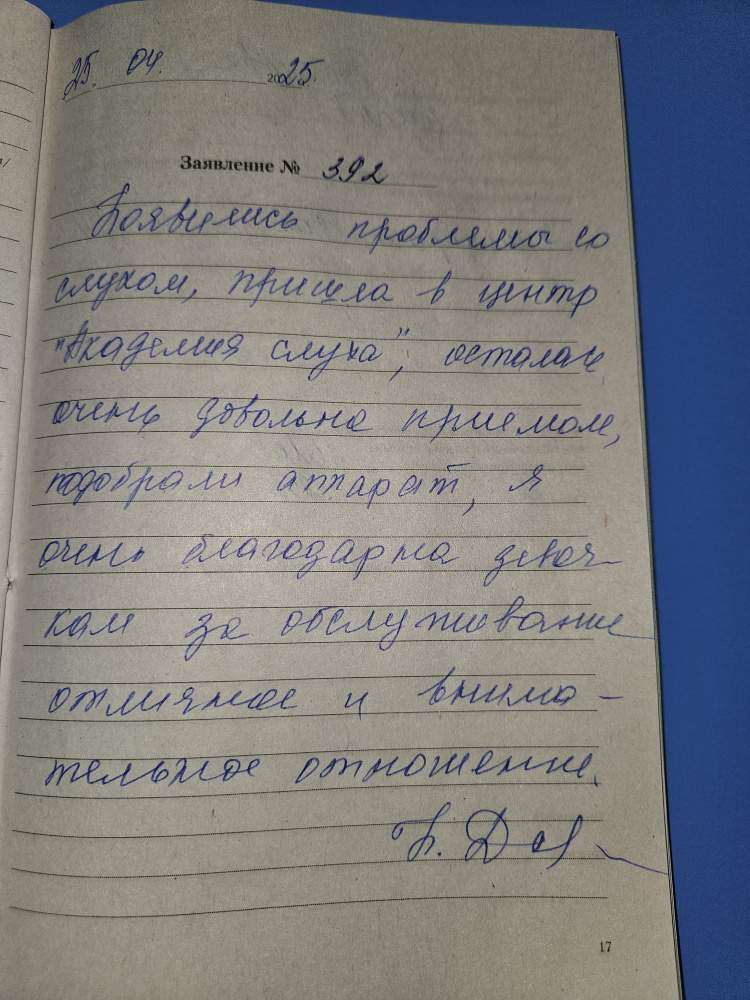 25. 04. 2025
Заявление № 392
Появились проблемы со
слухом, пришла в центр
"Академия слуха", осталась
очень довольна приемом,
подобрали аппарат, я
очень благодарна девоч-
кам за обслуживание
отличное и внима-
тельное отношение.
17